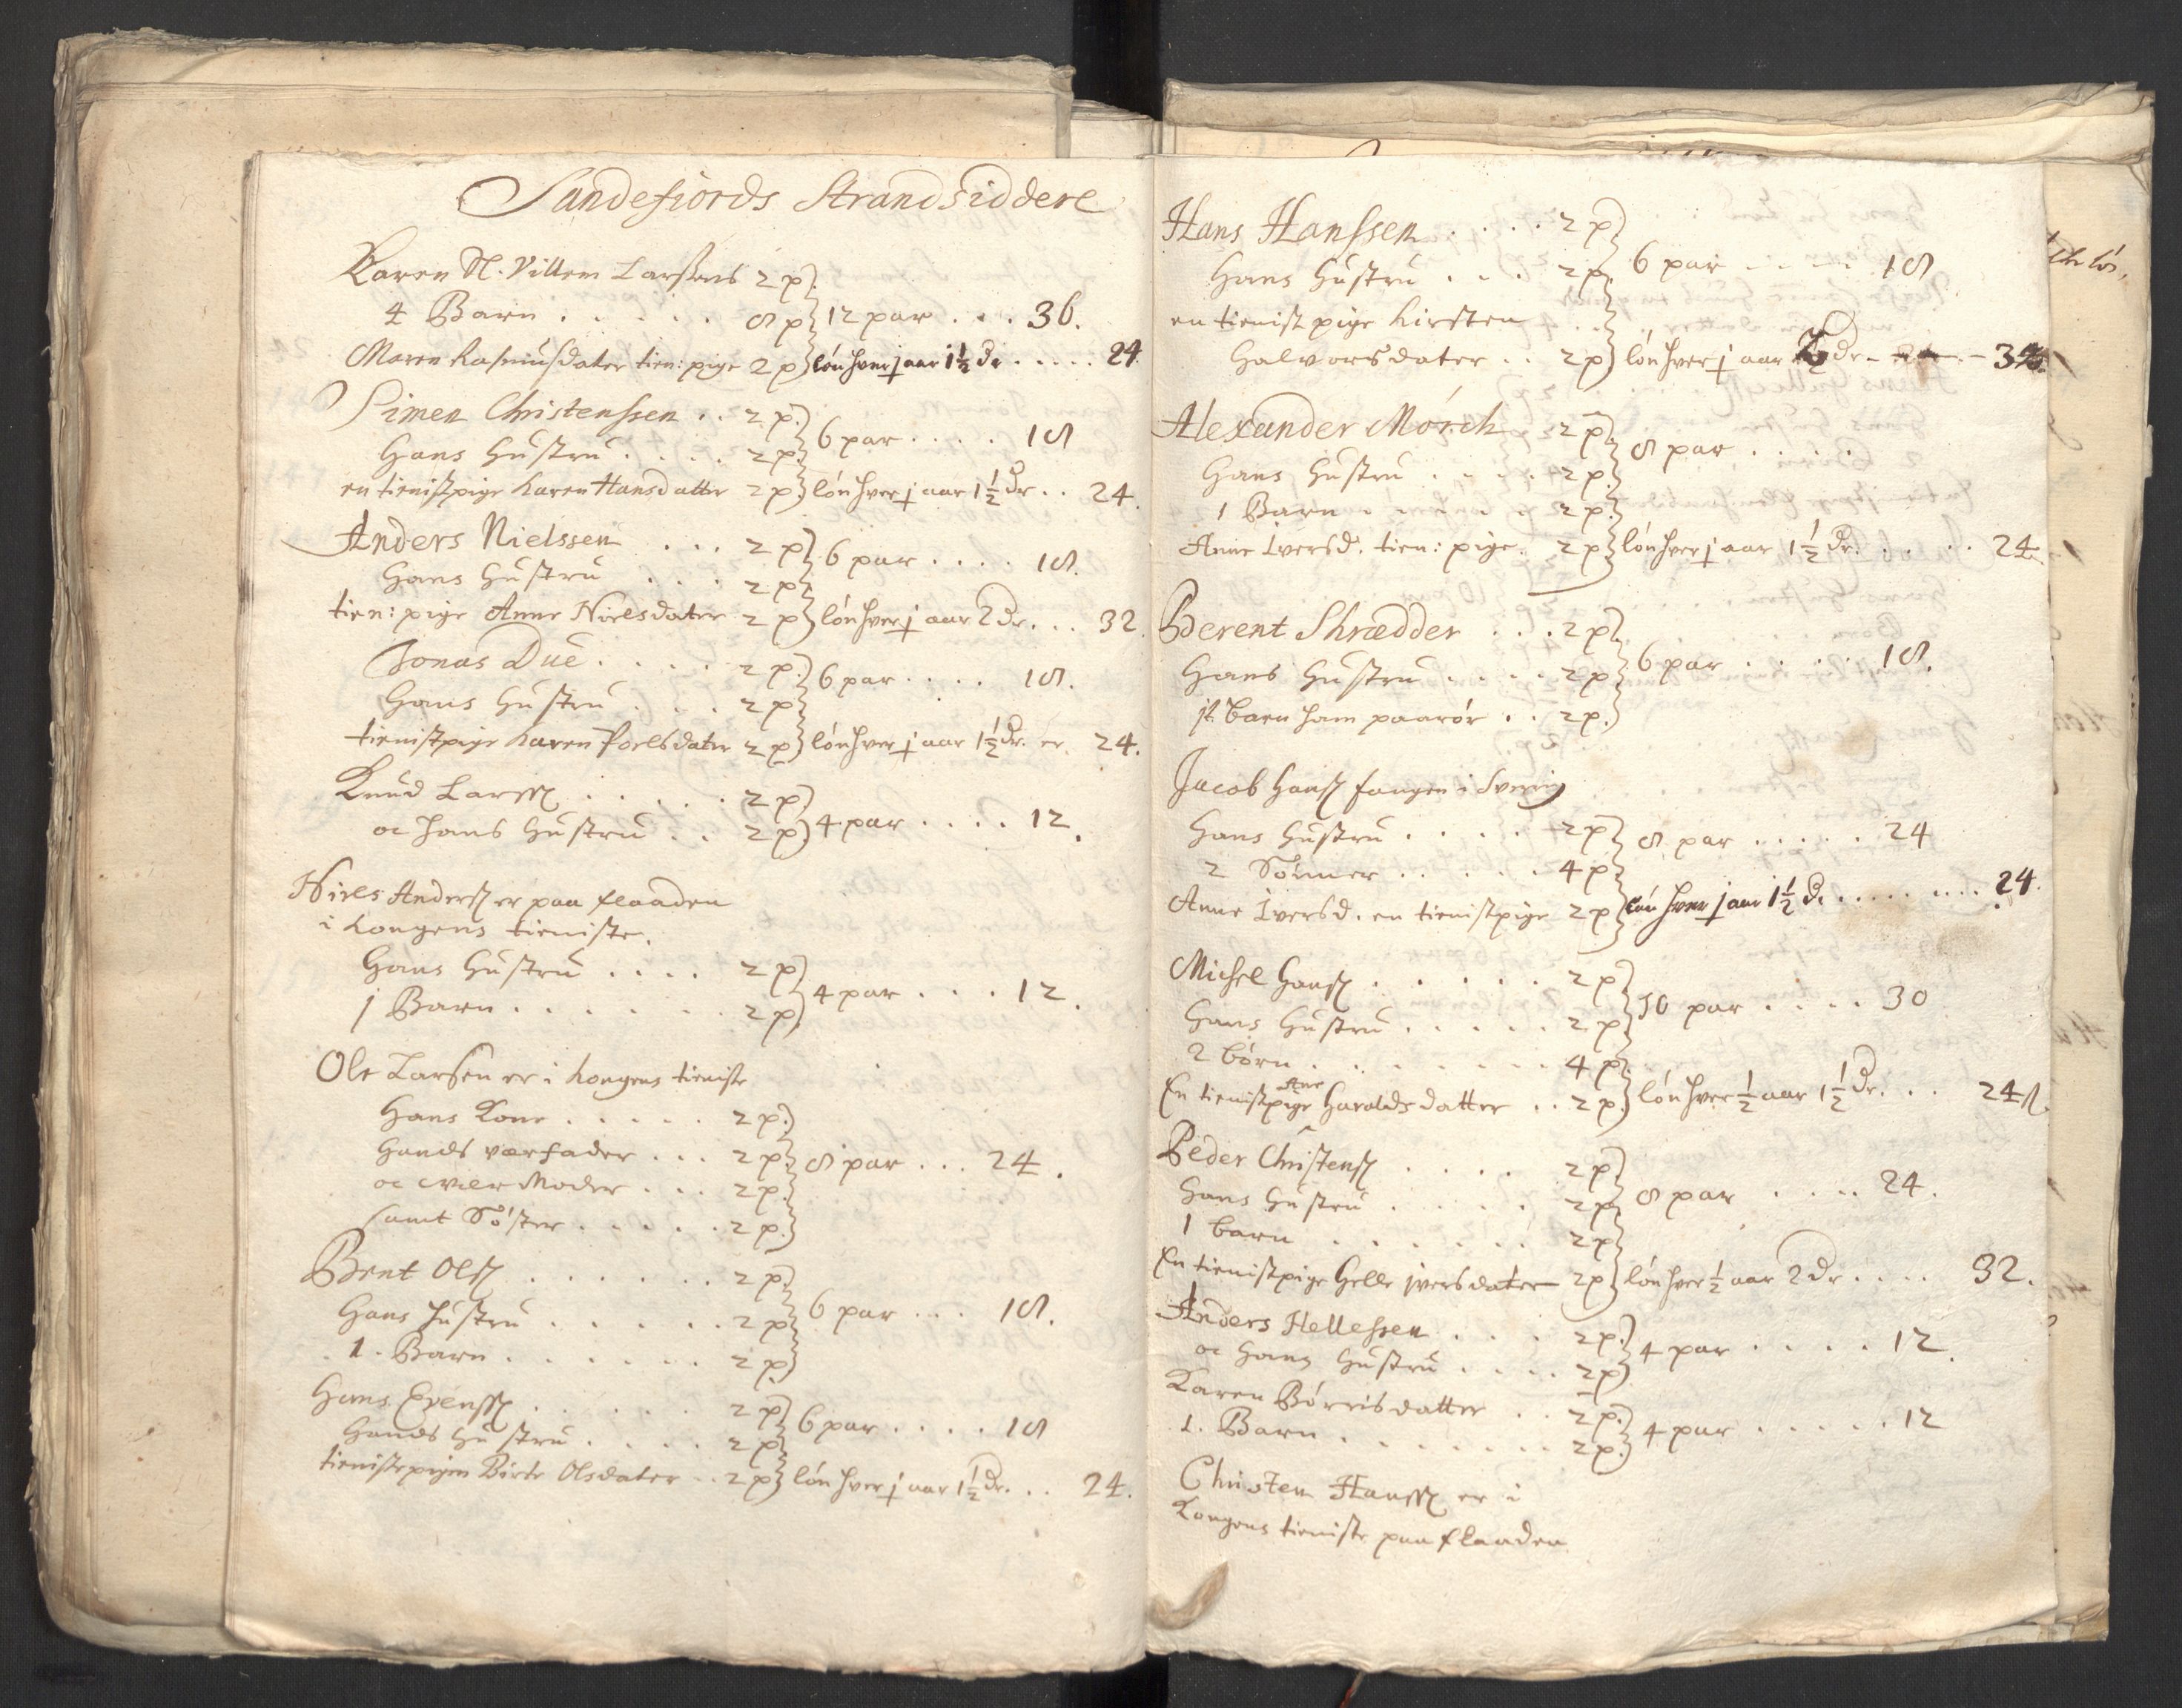 Sandefiords Strandsiddere
Karen Sl. Villem Larsens 2 p
4 Barn . . . . . 8 p 12 par . . . 36.
Maren Rasmusdater tien: pige 2 p lön hver j aar 1½ dr . . . . . 24.
Simen Christenssen . . 2 p.
Hans Hustru . . . . 2 p. 6 par . . . . 18
en tienistpige Karen Hansdatter 2 p. lön hver j aar 1½ dr . . 24.
Anders Nielssen . . . 2 p
Hans Hustru . . . 2 p. 6 par . . . . 18.
tien: pige Anne Nielsdater 2 p lön hver j aar 2 dr. . . 32.
Jonas Due . . . . 2 p.
Hans Hustru . . . 2 p. 6 par . . . . 18.
tienistpige Karen Poelsdater 2 p lön hver j aar 1½ dr. er. 24.
Knud Larss . . . . . . 2 p
oc hans Hustru . . 2 p 4 par . . . . 12.
Niels Anderss er paa flaaden
i Kongens tieniste.
Hans Hustru . . . . 2 p
j Barn . . . . . . 2 p 4 par . . . 12.
Ole Larsen er i Kongens tieniste
Hans Kone . . . . . 2 p.
Hands værfader . . . 2 p. 8 par . . . 24.
oc værmoder . . . 2 p.
samt Söster . . . . . 2 p.
Bent Olss . . . . . . 2 p.
Hans hustru . . . . . 2 p 6 par . . . 18.
1. Barn . . . . . . 2 p
Hans Evenss . . . . . 2 p 6 par . . . . 18
Hands Hustru . . . . 2 p
tienistepigen Birte Olsdater . . 2 p lön hver j aar 1½ dr. . . 24.
Hans Hanssen . . . . 2 p
Hans Hustru . . . 2 p. 6 par . . . . 18
en tienist pige Kirsten
Halvorsdater . . 2 p lön hver j aar 2 dr - - 32.
Alexander Mörch . . 2 p
Hans Hustru . . . . 2 p. 8 par . . . . .
1 Barn . . . . . . 2 p.
Anne Iversd. tien: pige. 2 p lön hver j aar 1½ dr. . . . . . 24.
Berent Skrædder . . . 2 p
Hans Hustru . . . . 2 p 6 par . . . . . 18.
it barn ham paarör . . 2 p.
Jacob Hanss fangen i Sverrig
Hans Hustru . . . . 2 p 8 par . . . . . 24
2 Sönner . . . . . 4 p.
Anne Iversd. en tienistpige 2 p lön hver j aar 1½ d. . . . . . . . 24.
Michel Hanss . . . . . . 2 p
Hans Hustru . . . . . 2 p 10 par . . . . 30
2 börn . . . . . . . 4 p.
Ane
En tienistpige Haraldsdatter . . 2 p. lön hver ½ aar 1½ dr. . . 24 ß.
Peder Christenss . . . . . 2 p
Hans Hustru . . . . . 2 p. 8 par . . . . 24.
1 barn . . . . . . . 2 p
En tienistpige Helle iversdater 2 p lön hver ½ aar 2 dr . . . . 32.
Anders Hellessen . . . 2 p.
oc Hans Hustru . . . . 2 p 4 par . . . . . 12.
Karen Börrisdatter . . 2 p.
1. Barn . . . . . . . 2 p. 4 par . . . . . 12
Christen Hanss er i
Kongens tieniste paa flaaden